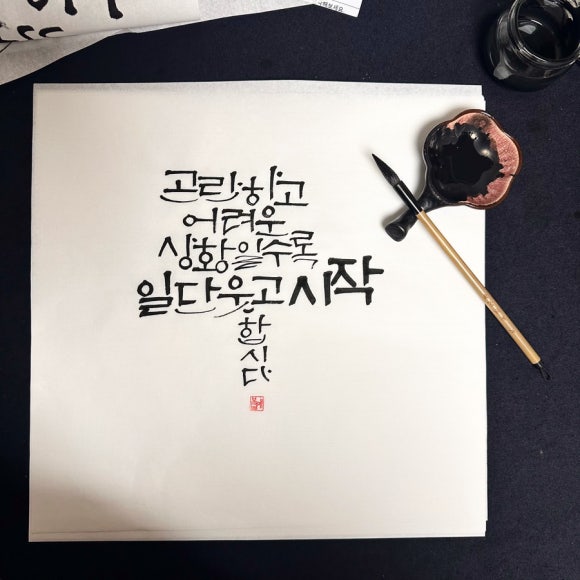 곤란하고
어려운
상황일수록
일단 웃고 시작
합
시
다